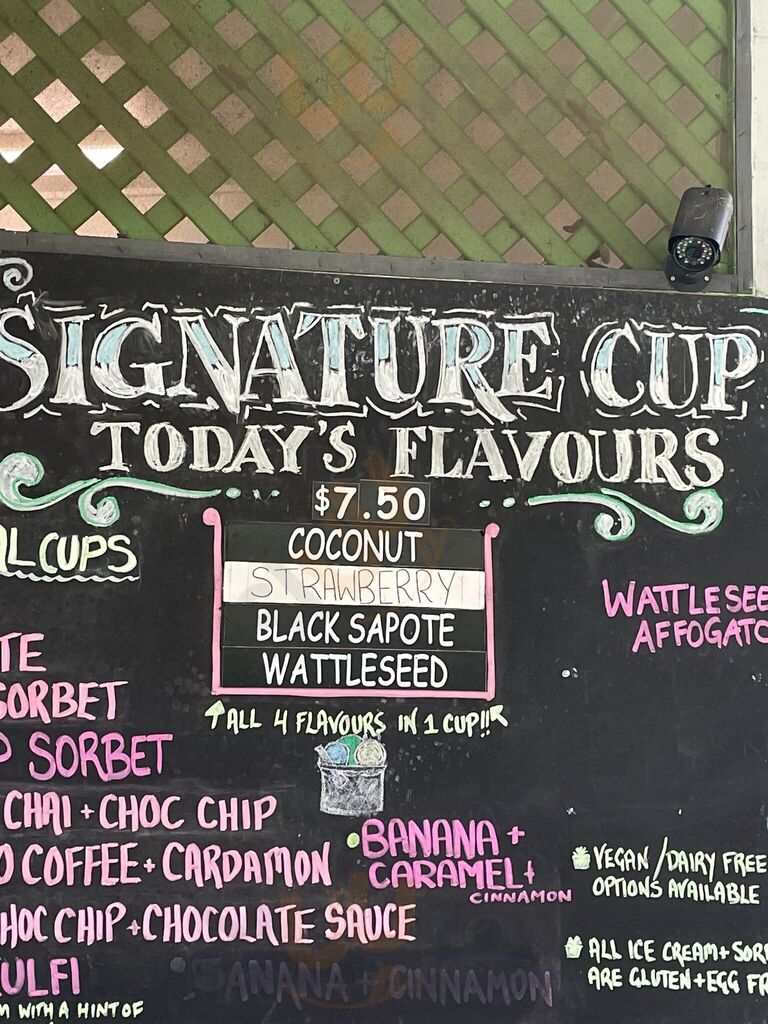 SIGNATURE CUP
TODAY'S FLAVOURS
$7.50
COCONUT
STRAWBERRY
BLACK SAPOTE
WATTLESEED
ALL 4 FLAVOURS IN 1 CUP!!
L CUPS
TE
SORBET
P SORBET
CHAI + CHOC CHIP
O COFFEE + CARDAMON
HOC CHIP + CHOCOLATE SAUCE
ULFI
M WITH A HINT OF
BANANA +
CARAMEL +
CINNAMON
BANANA + CINNAMON
WATTLESEE
AFFOGATO
VEGAN / DAIRY FREE
OPTIONS AVAILABLE
ALL ICE CREAM + SOR
ARE GLUTEN + EGG FR